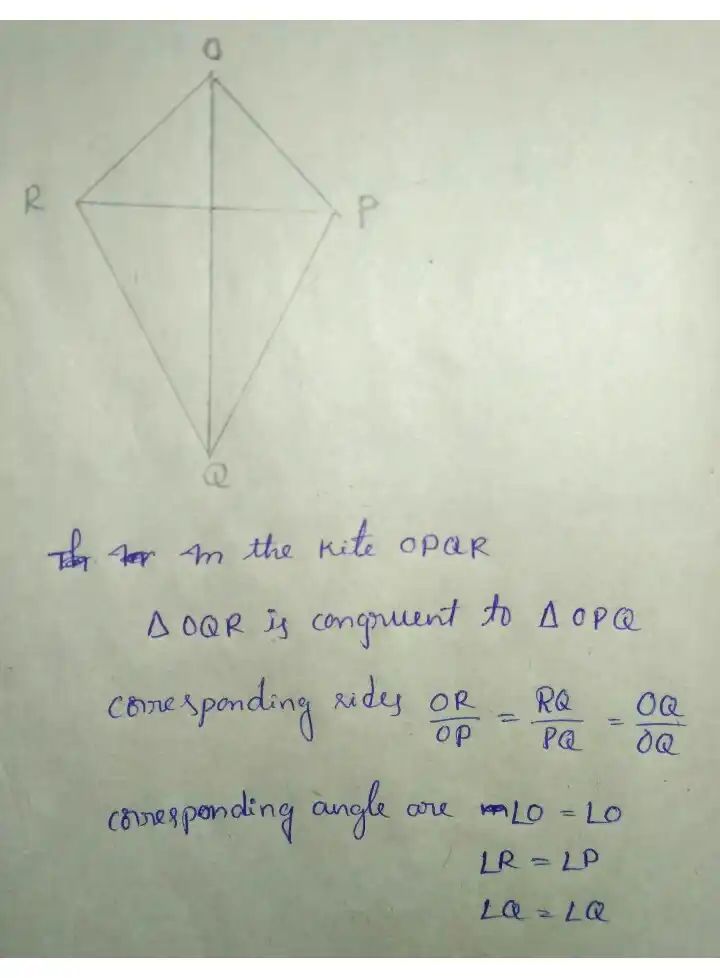 O
R
P
Q
In the Kite OPQR
Δ OQR is congruent to Δ OPQ
corresponding sides OR/OP = RQ/PQ = OQ/OQ
corresponding angle are ∠O = ∠O
∠R = ∠P
∠Q = ∠Q